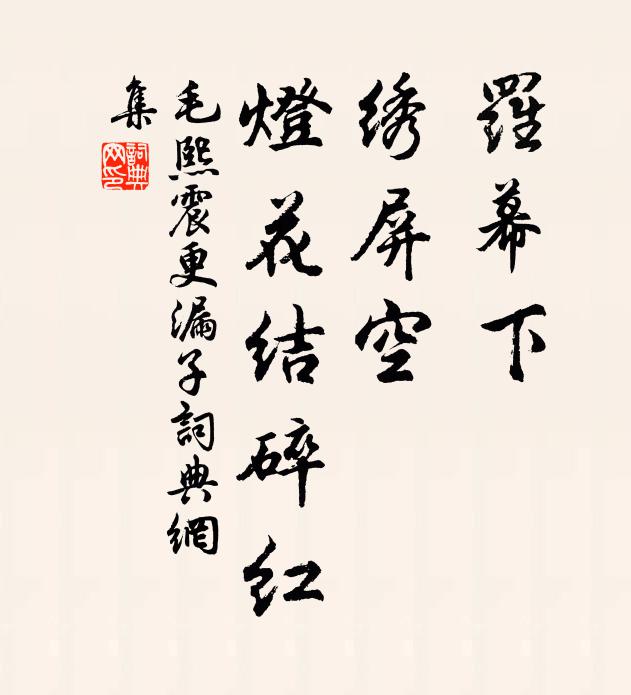 羅幕下
绣屏空
燈花结碎红
毛熙震更漏子詞典網
集
詞典網印